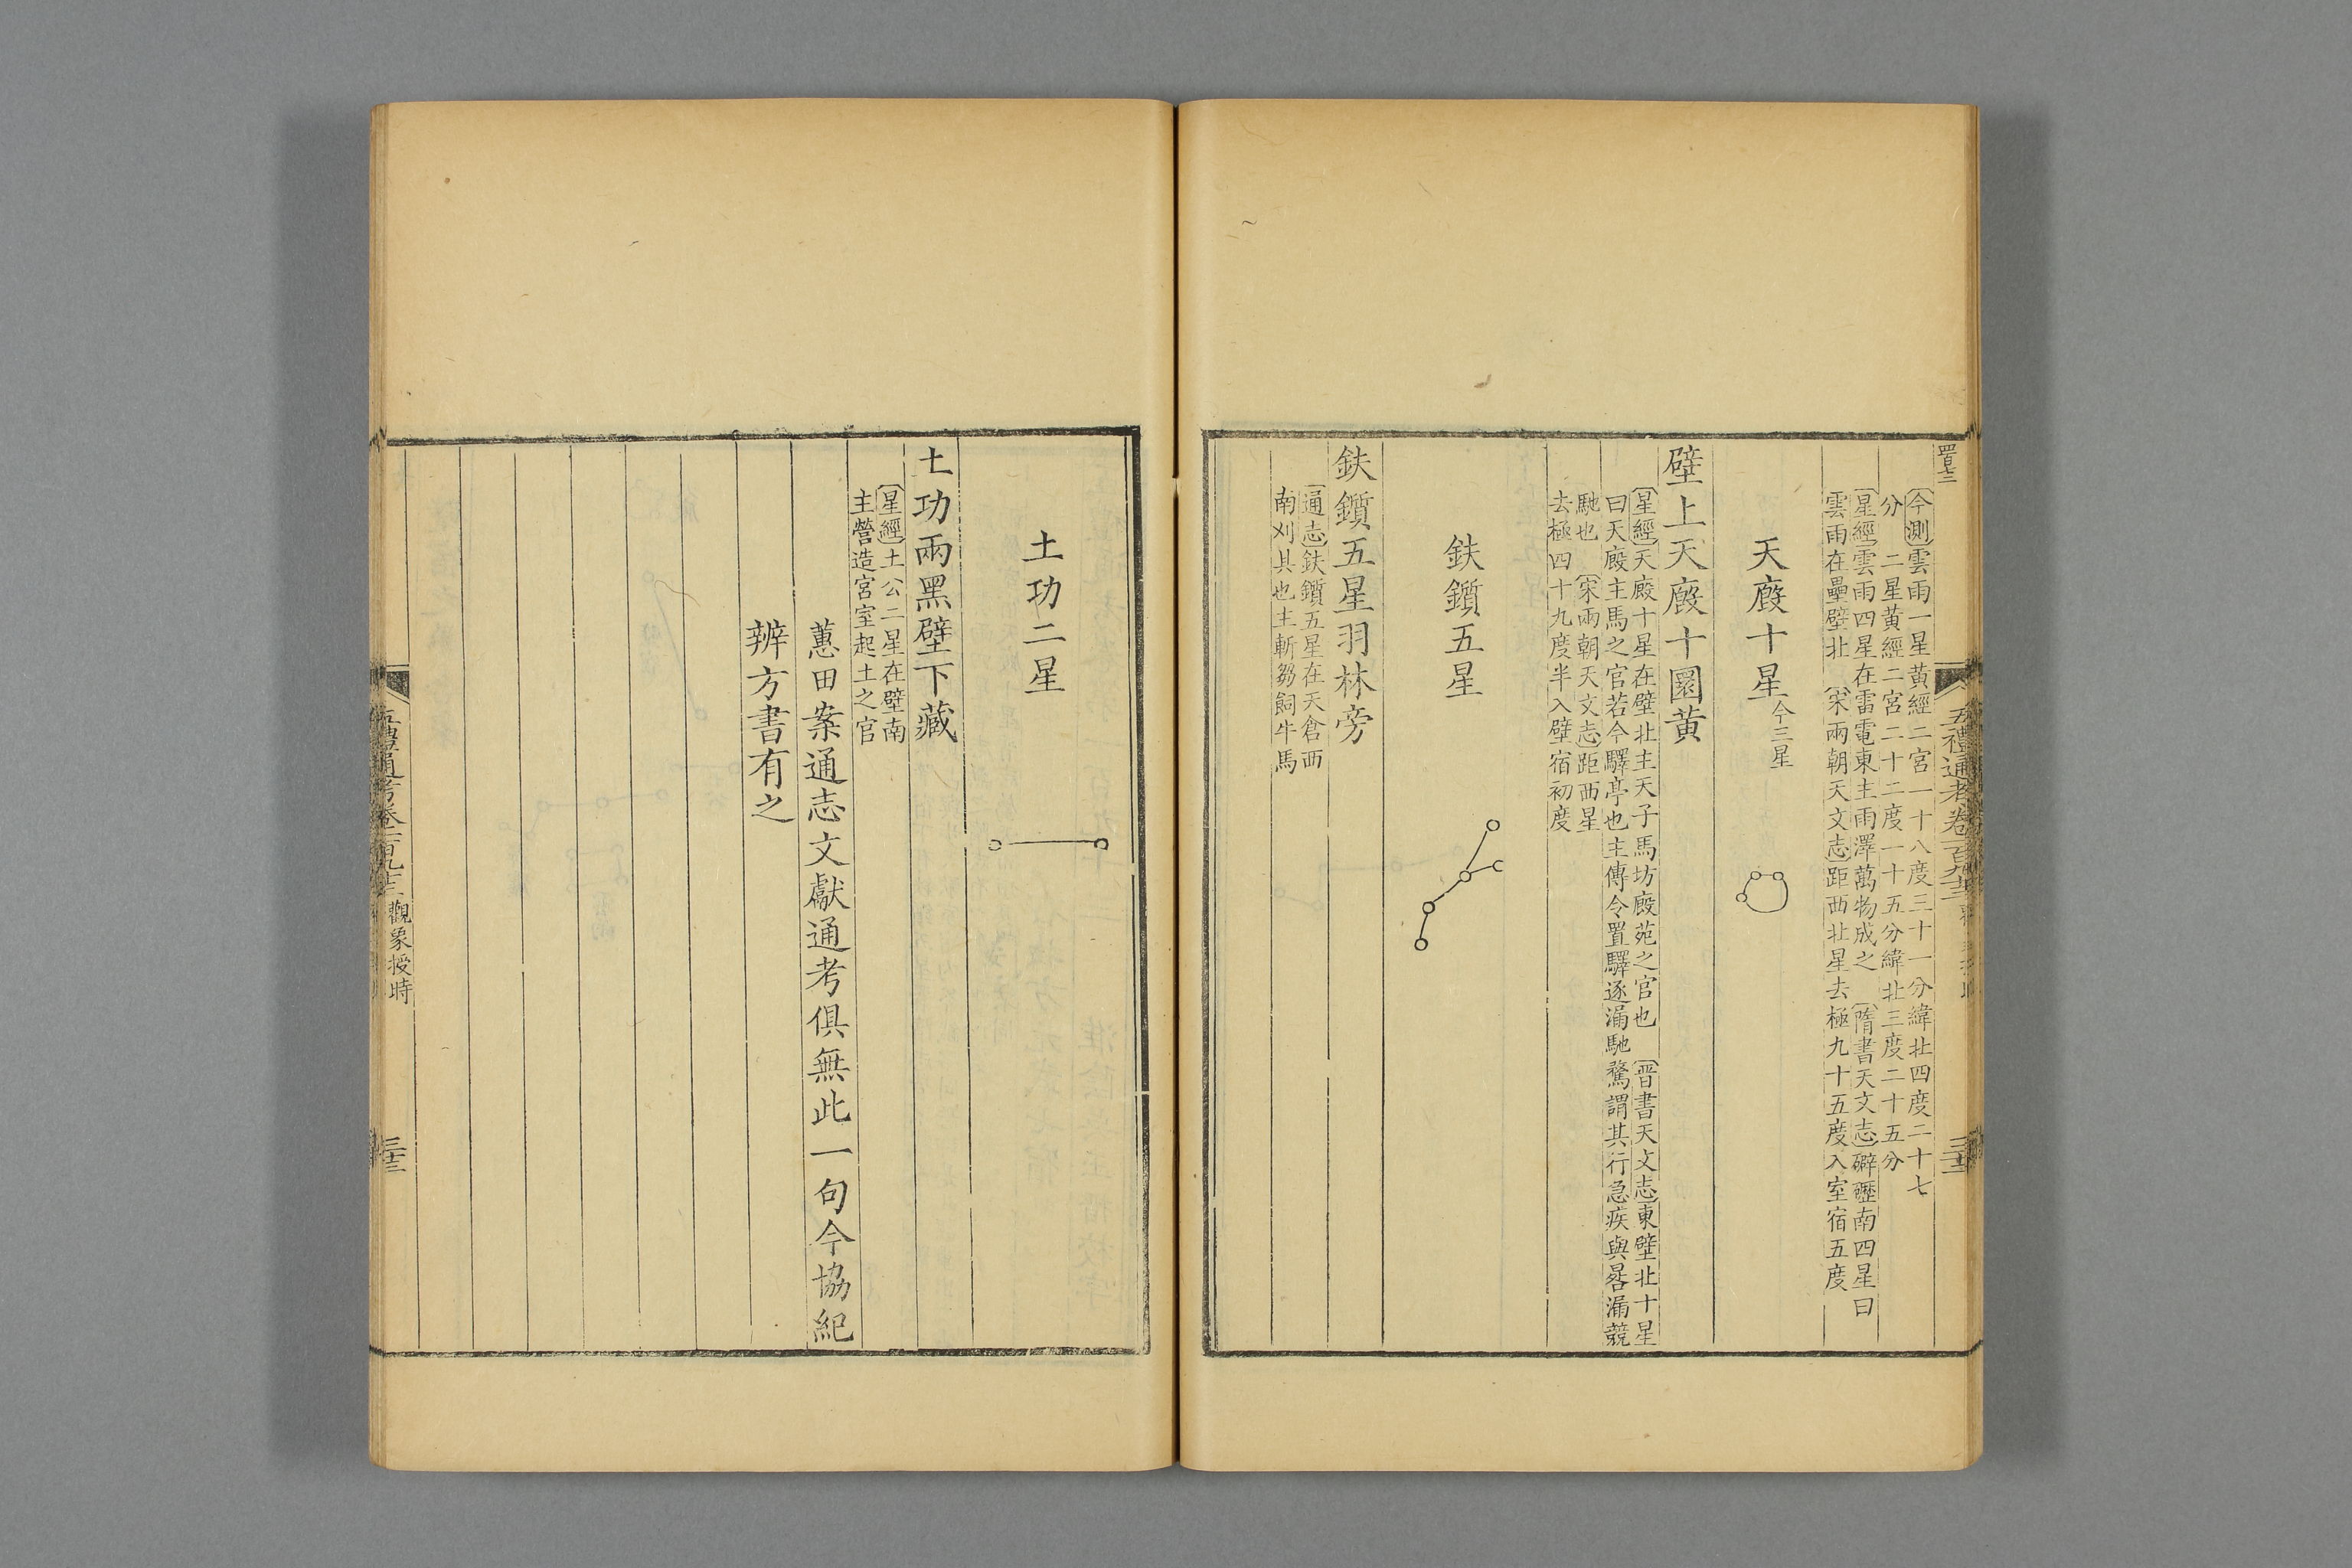 五禮通考卷一百九十三
今測雲雨一星黃經二宮一十八度三十一分緯北四度二十七
分　二星黃經二宮二十二度一十五分緯北三度二十五分
星經雲雨四星在雷電東主雨澤萬物成之　隋書天文志礔礰南四星曰
雲雨在壘壁北　宋兩朝天文志距西北星去極九十五度入室宿五度
天廐十星今三星
壁上天廐十圜黃
星經天廐十星在壁北主天子馬坊廐苑之官也　晉書天文志東壁北十星
曰天廐主馬之官若今驛亭也主傳令置驛逐漏馳騖謂其行急疾與晷漏競
馳也　宋兩朝天文志距西星
去極四十九度半入壁宿初度
鈇鑕五星
鈇鑕五星羽林旁
通志鈇鑕五星在天倉西
南刈具也主斬芻飼牛馬
土功二星
土功兩黑壁下藏
星經土公二星在壁南
主營造宮室起土之官
蕙田案通志文獻通考俱無此一句今協紀
辨方書有之
五禮通考卷一百九十三　觀象授時　三十三